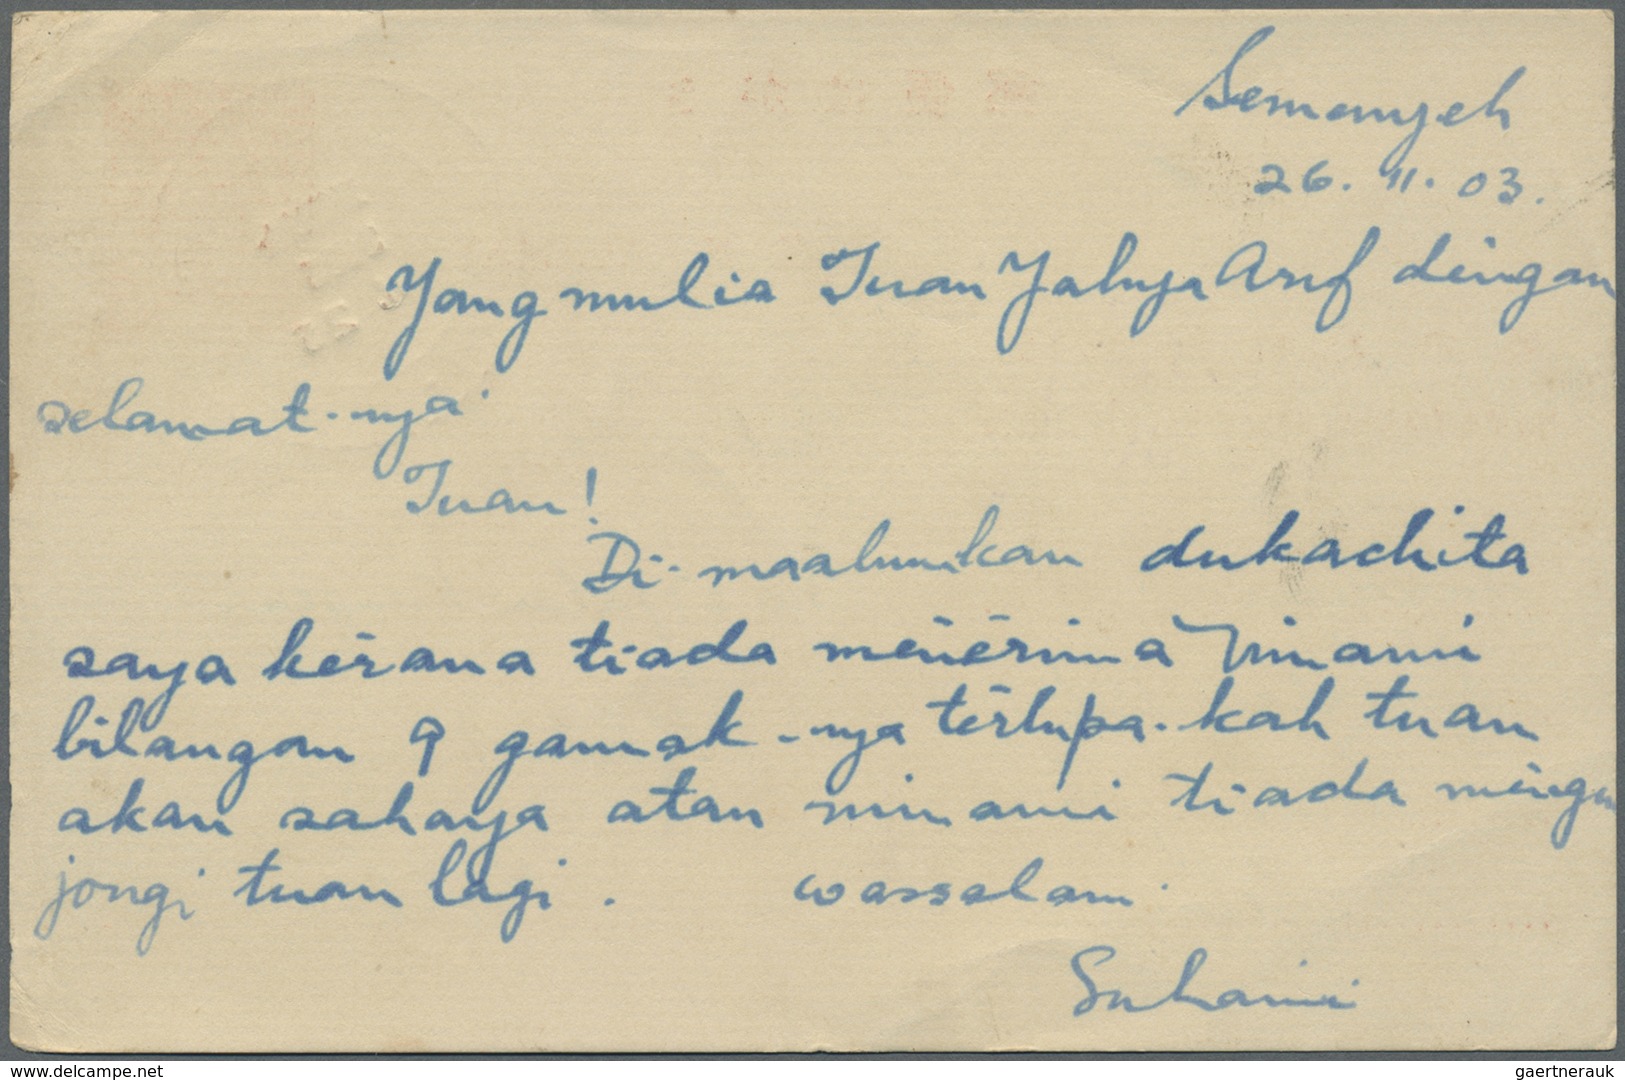 Semenyeh
26. 11. 03.
Yang mulia Tuan Yahya Arif dengan
selamat-nya.
Tuan!
Di-maalumkan dukachita
saya kĕrana tiada mĕnĕrima Minami
bilangan 9 gamak-nya tĕrlupa-kah tuan
akan sahaya atau minami tiada mĕngun
jongi tuan lagi. wassalam.
Suhaimi
www.delcampe.net
gaertnerauk